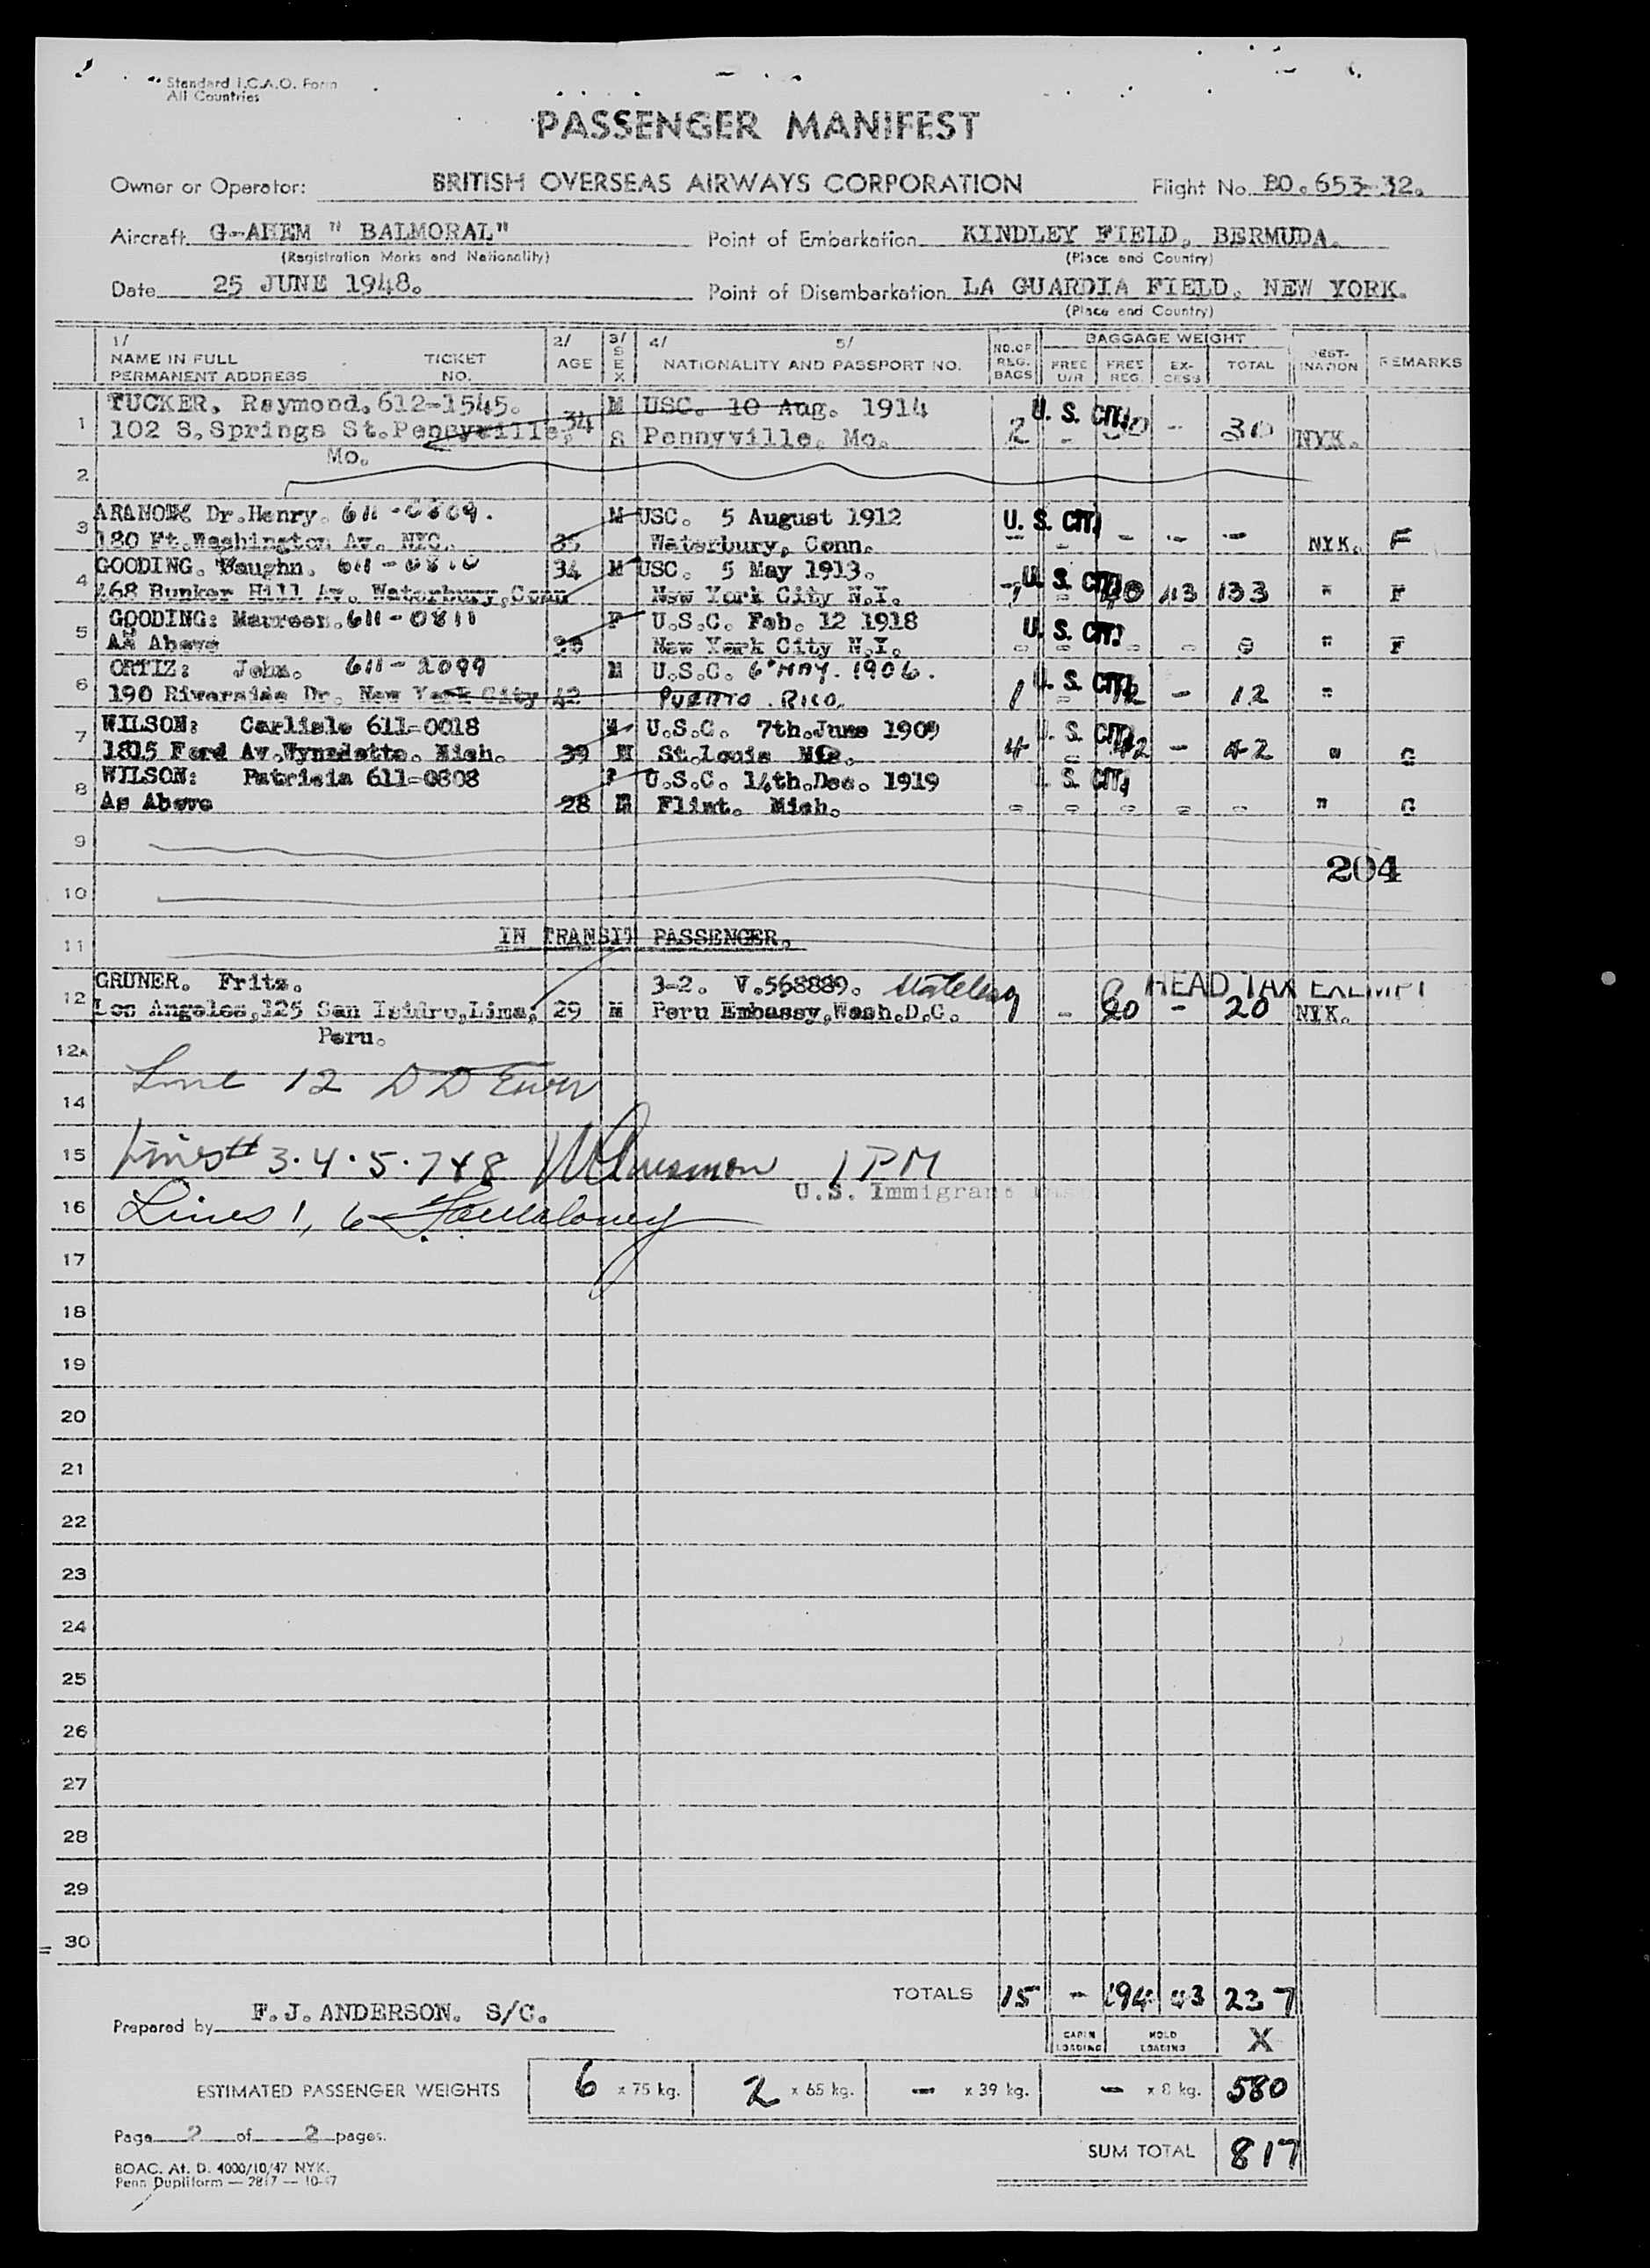 Standard I.C.A.O. Form
All Countries
PASSENGER MANIFEST
Owner or Operator: BRITISH OVERSEAS AIRWAYS CORPORATION Flight No. BO.653-32.
Aircraft G-AHEM " BALMORAL" Point of Embarkation KINDLEY FIELD, BERMUDA.
(Registration Marks and Nationality) (Place and Country)
Date 25 JUNE 1948. Point of Disembarkation LA GUARDIA FIELD, NEW YORK.
(Place and Country)
1/ NAME IN FULL PERMANENT ADDRESS TICKET NO. 2/ AGE 3/ SEX 4/ 5/ NATIONALITY AND PASSPORT NO. NO. OF REG. BAGS BAGGAGE WEIGHT FREE U/R FREE REG. EX-CESS TOTAL DEST-INATION REMARKS
TUCKER, Raymond. 612-1545. M USC. 10 Aug. 1914 U. S. CIT.
1 102 S.Springs St.Pennyville, 34 S Pennyville. Mo. 2 - 30 - 30 NYK.
Mo.
2
Dr.Henry. M USC. 5 August 1912 U. S. CIT.
3 180 Ft.Washington Av. NYC. 35 Waterbury, Conn. - - - - - NYK. F
GOODING. Vaughn. 34 M USC. 5 May 1913. U. S. CIT.
4 168 Bunker Hill Av. Waterbury,Conn New York City N.Y. 133 " F
GOODING: Maureen. 611-0811 F U.S.C. Feb. 12 1918 U. S. CIT.
5 As Above New York City N.Y. - - - - - " F
ORTIZ: John. 611-2099 M U.S.C. 6 MAY. 1906.
6 190 Riverside Dr. New York City 42 PUERTO RICO. 1 U. S. CIT. - 12 - 12 "
WILSON: Carlisle 611-0018 U.S.C. 7th.June 1909
7 1815 Ford Av.Wynadotte. Mich. 39 M St.Louis Mo. 4 U. S. CIT. - 42 - 42 " G
WILSON: Patricia 611-0808 F U.S.C. 14th.Dec. 1919 U. S. CIT.
8 As Above 28 Flint. Mich. - - - - - " G
9
204
10
11 IN TRANSIT PASSENGER.
GRUNER. Fritz. 3-2. V.568889. HEAD TAX EXEMPT
12 Los Angeles,125 San Isidro,Lima, 29 M Peru Embassy,Wash.D.C. 1 - 20 - 20 NYK.
Peru.
12A
Line 12 D D
14
15 Lines # 3.4.5.7&8 1 PM
U.S. Immigrant
16 Lines 1, 6
17
18
19
20
21
22
23
24
25
26
27
28
29
30
TOTALS 15 - 194 43 237
Prepared by F.J.ANDERSON. S/C.
CABIN LOADING HOLD LOADING X
ESTIMATED PASSENGER WEIGHTS 6 x 75 kg. 2 x 65 kg. - x 39 kg. - x 8 kg. 580
Page 2 of 2 pages.
SUM TOTAL 817
BOAC. At. D. 4000/10/47 NYK.
Penn Dupliform — 2817 — 10-47